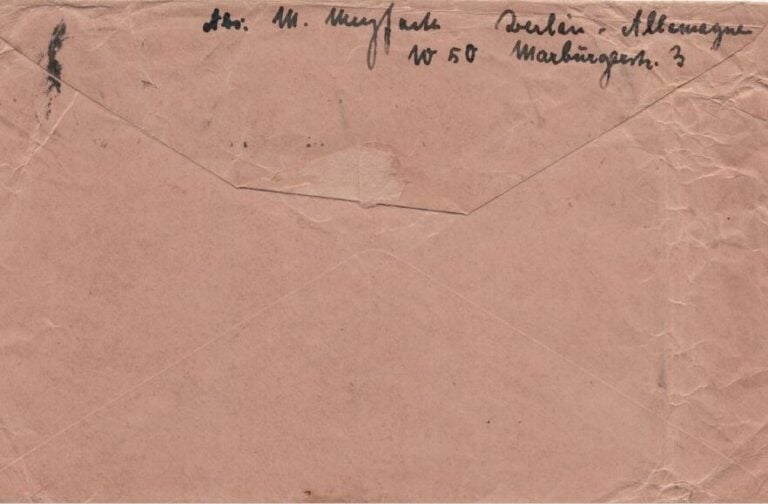 Abs: M. Berlin - Allemagne
W 50 Marburgerstr. 3